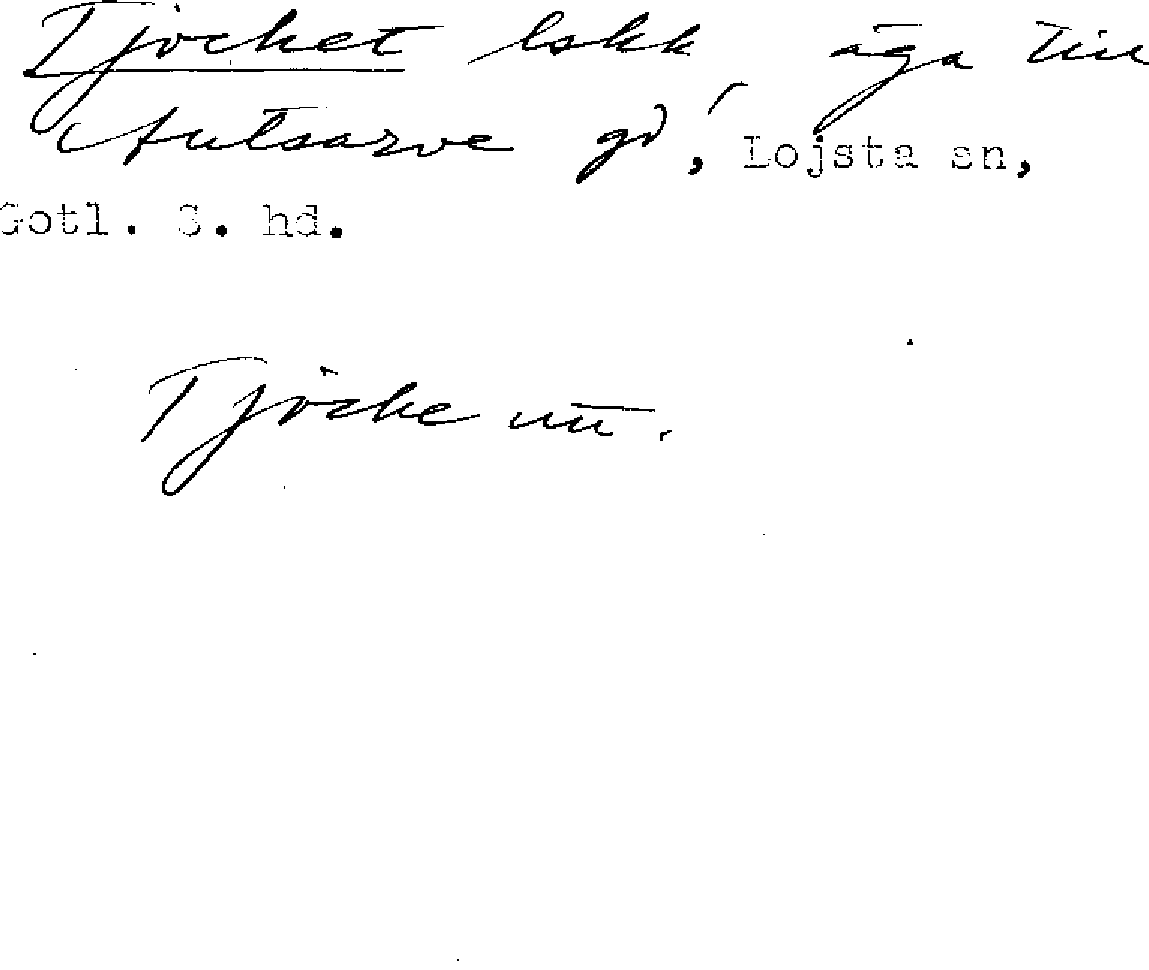 Tjocket lskk, äga till
Autsarve gd, Lojsta sn,
Gotl. S. hd.
Tjöcke